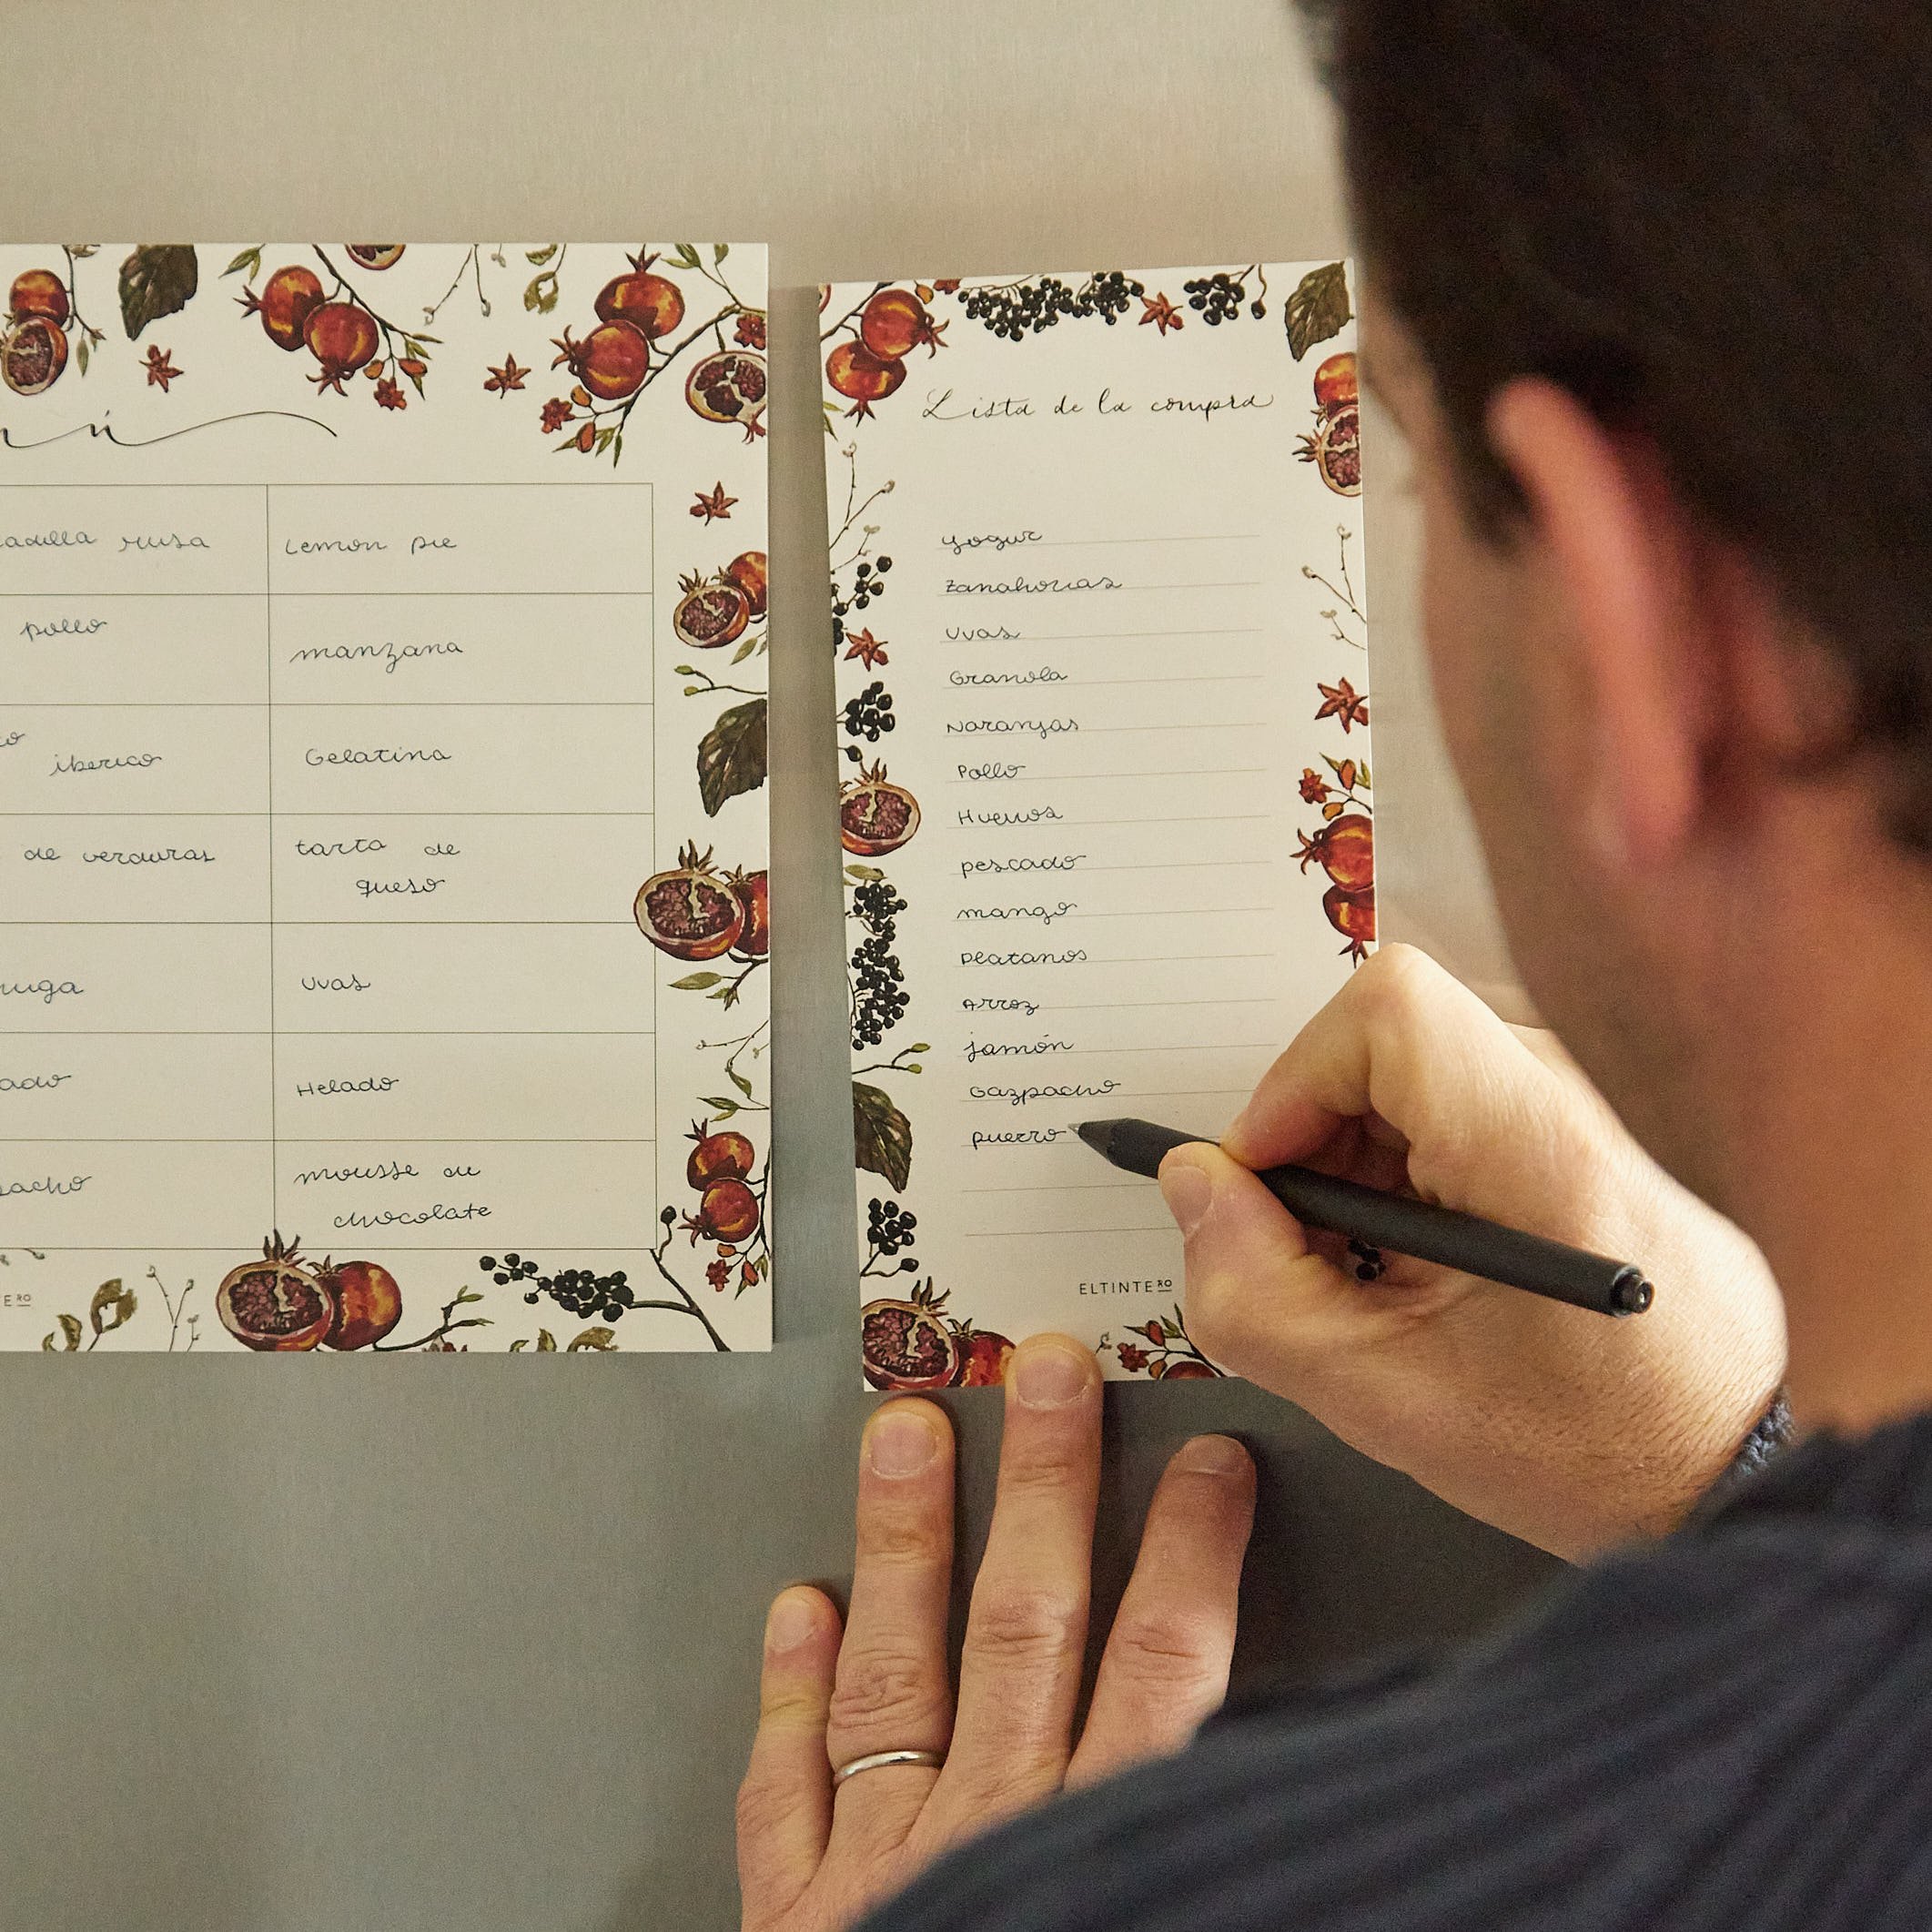 ú
adilla rusa
Lemon pie
pollo
manzana
iberico
Gelatina
de verduras
tarta de
queso
Uvas
Helado
mousse du
chocolate
ERO
Lista de la compra
yogur
Zanahorias
Uvas
Granola
Naranjas
Pollo
Huevos
pescado
mango
platanos
Arroz
jamón
Gazpacho
puerro
ELTINTERO